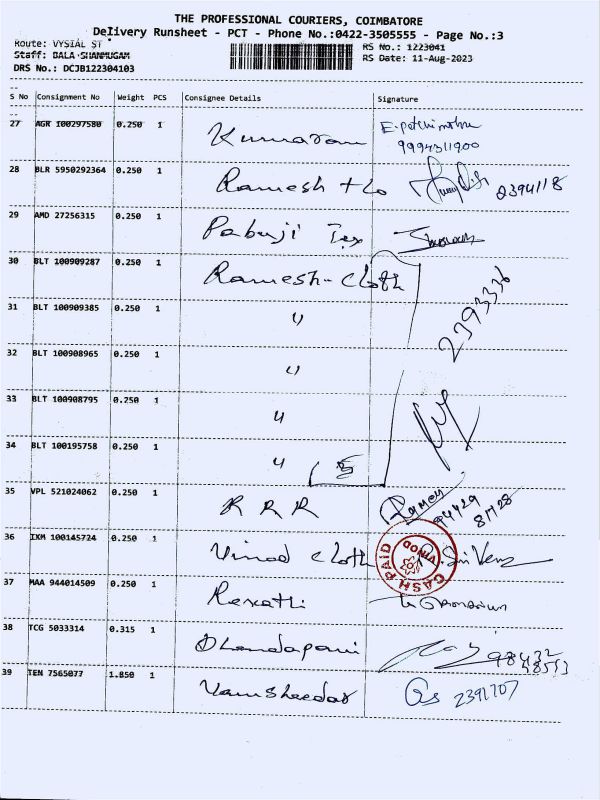 THE PROFESSIONAL COURIERS, COIMBATORE
Delivery Runsheet - PCT - Phone No.:0422-3505555 - Page No.:3
Route: VYSIAL ST RS No.: 1223041
Staff: BALA SHANMUGAM RS Date: 11-Aug-2023
DRS No.: DCJB122304103
S No Consignment No Weight PCS Consignee Details Signature
27 AGR 100297580 0.250 1 Kumaran
9994311900
28 BLR 5950292364 0.250 1 Ramesh + Co 2394118
29 AMD 27256315 0.250 1 Pabuji Tex
30 BLT 100909287 0.250 1 Ramesh-Cloth
31 BLT 100909385 0.250 1 "
2393336
32 BLT 100908965 0.250 1 "
33 BLT 100908795 0.250 1 "
34 BLT 100195758 0.250 1 "
35 VPL 521024062 0.250 1 R R R Ramen
94429
81728
36 IXM 100145724 0.250 1 Vinod Cloth
VINOD CASH PAID
37 MAA 944014509 0.250 1 Revathi
38 TCG 5033314 0.315 1 Dhandapani 98432
48553
39 TEN 7565077 1.850 1 Vamsheedar Gs 2391707